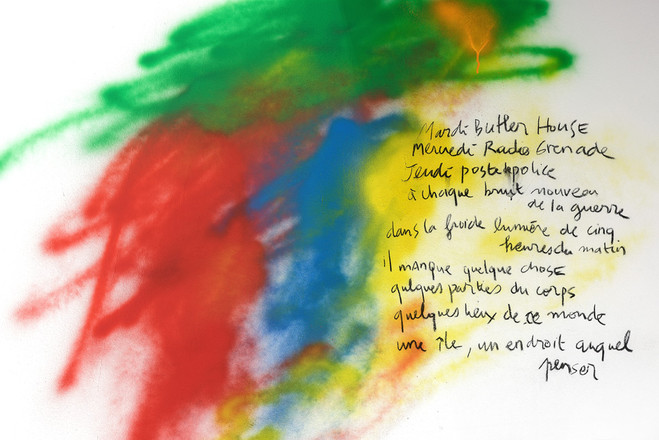 Mardi Butler House
Mercredi Radio Grenade
Jeudi poste police
à chaque bruit nouveau
de la guerre
dans la froide lumière de cinq
heures du matin
il manque quelque chose
quelques parties du corps
quelques lieux de ce monde
une île, un endroit auquel
penser